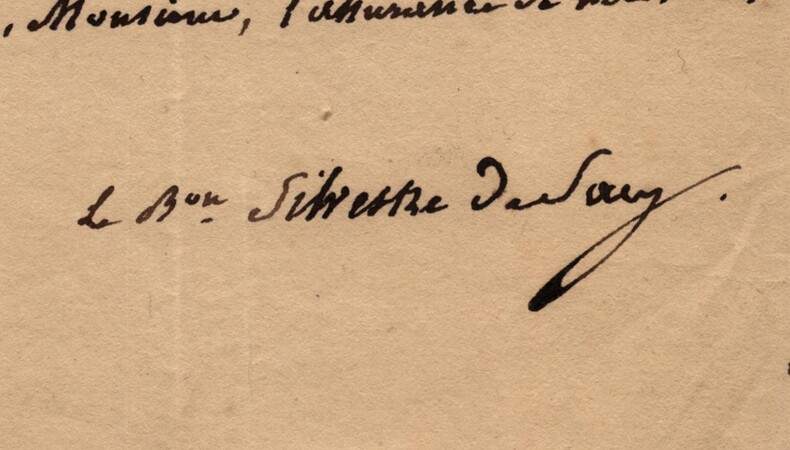 , Monsieur, l'assurance de
Le Bon Silvestre De Sacy.